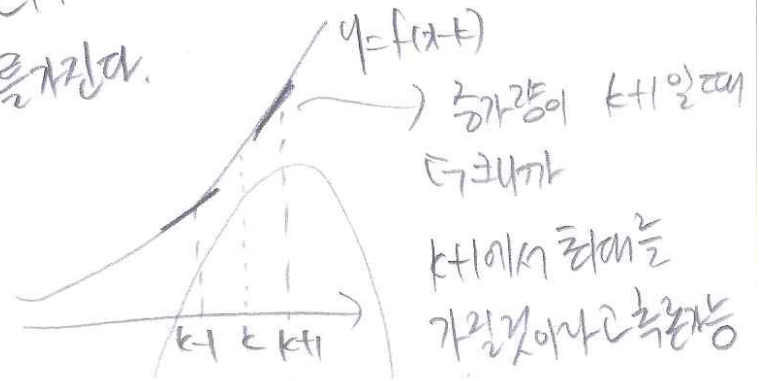 를가진다.
y=f(x-k)
증가량이 k+1일때
더크니까
k+1에서 최대를
가질것이라고 추론가능
k-1 k k+1